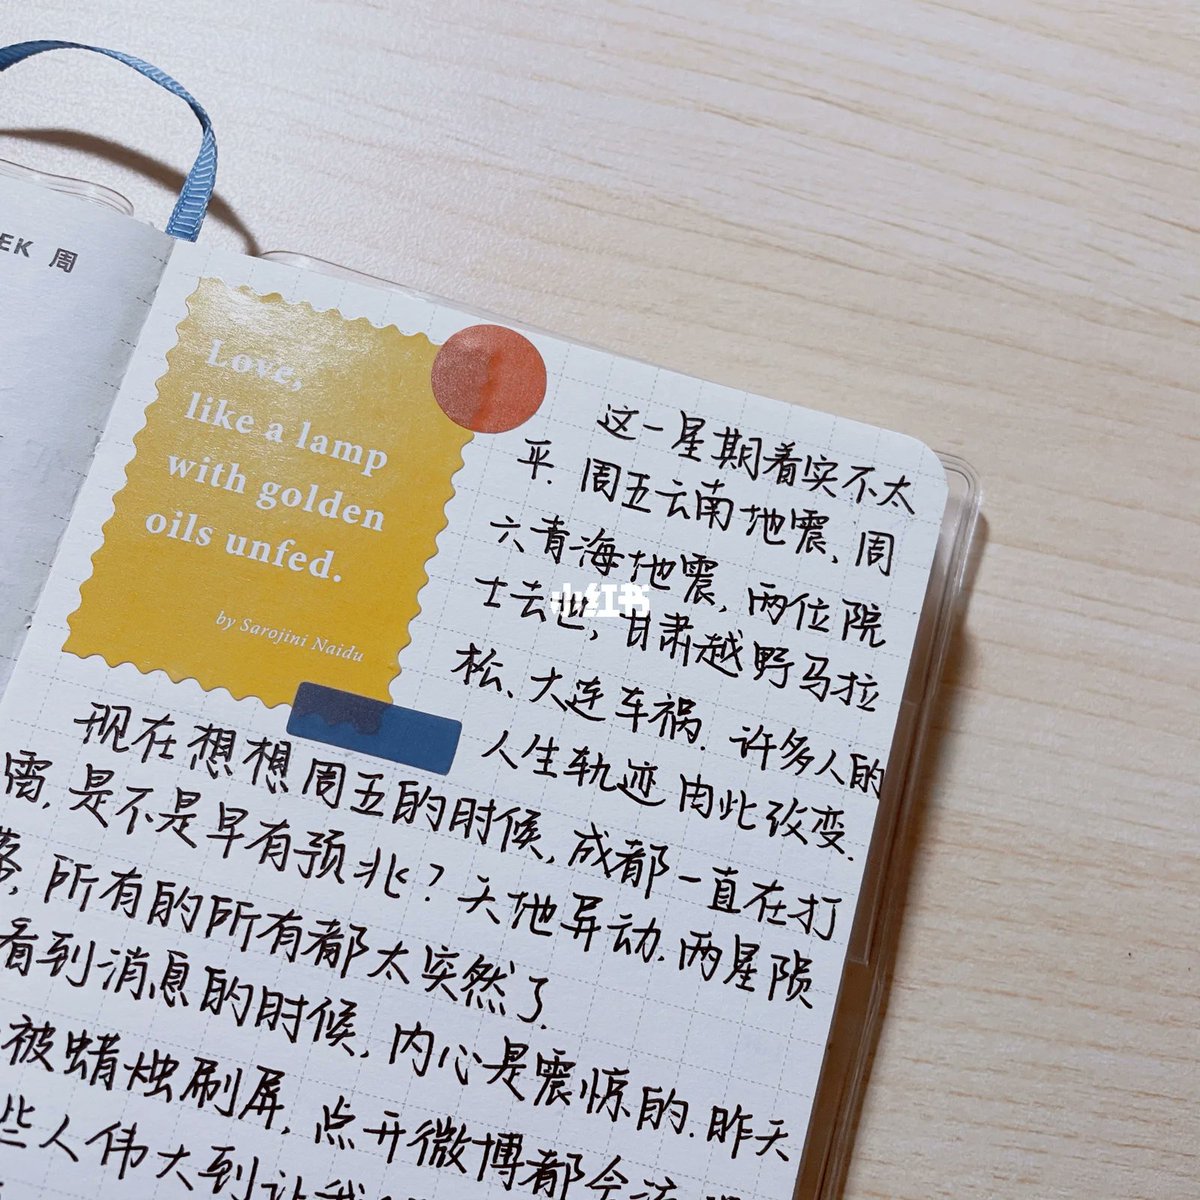 EK 周
Love,
like a lamp
with golden
oils unfed.
by Sarojini Naidu
这一星期着实不太
平.周五云南地震,周
六青海地震,两位院
士去世,甘肃越野马拉
松、大连车祸.许多人的
人生轨迹由此改变.
现在想想周五的时候,成都一直在打
雷,是不是早有预兆?天地异动.两星陨
落,所有的所有都太突然了.
看到消息的时候,内心是震惊的.昨天
被蜡烛刷屏,点开微博都会流
些人伟大到让我
小红书